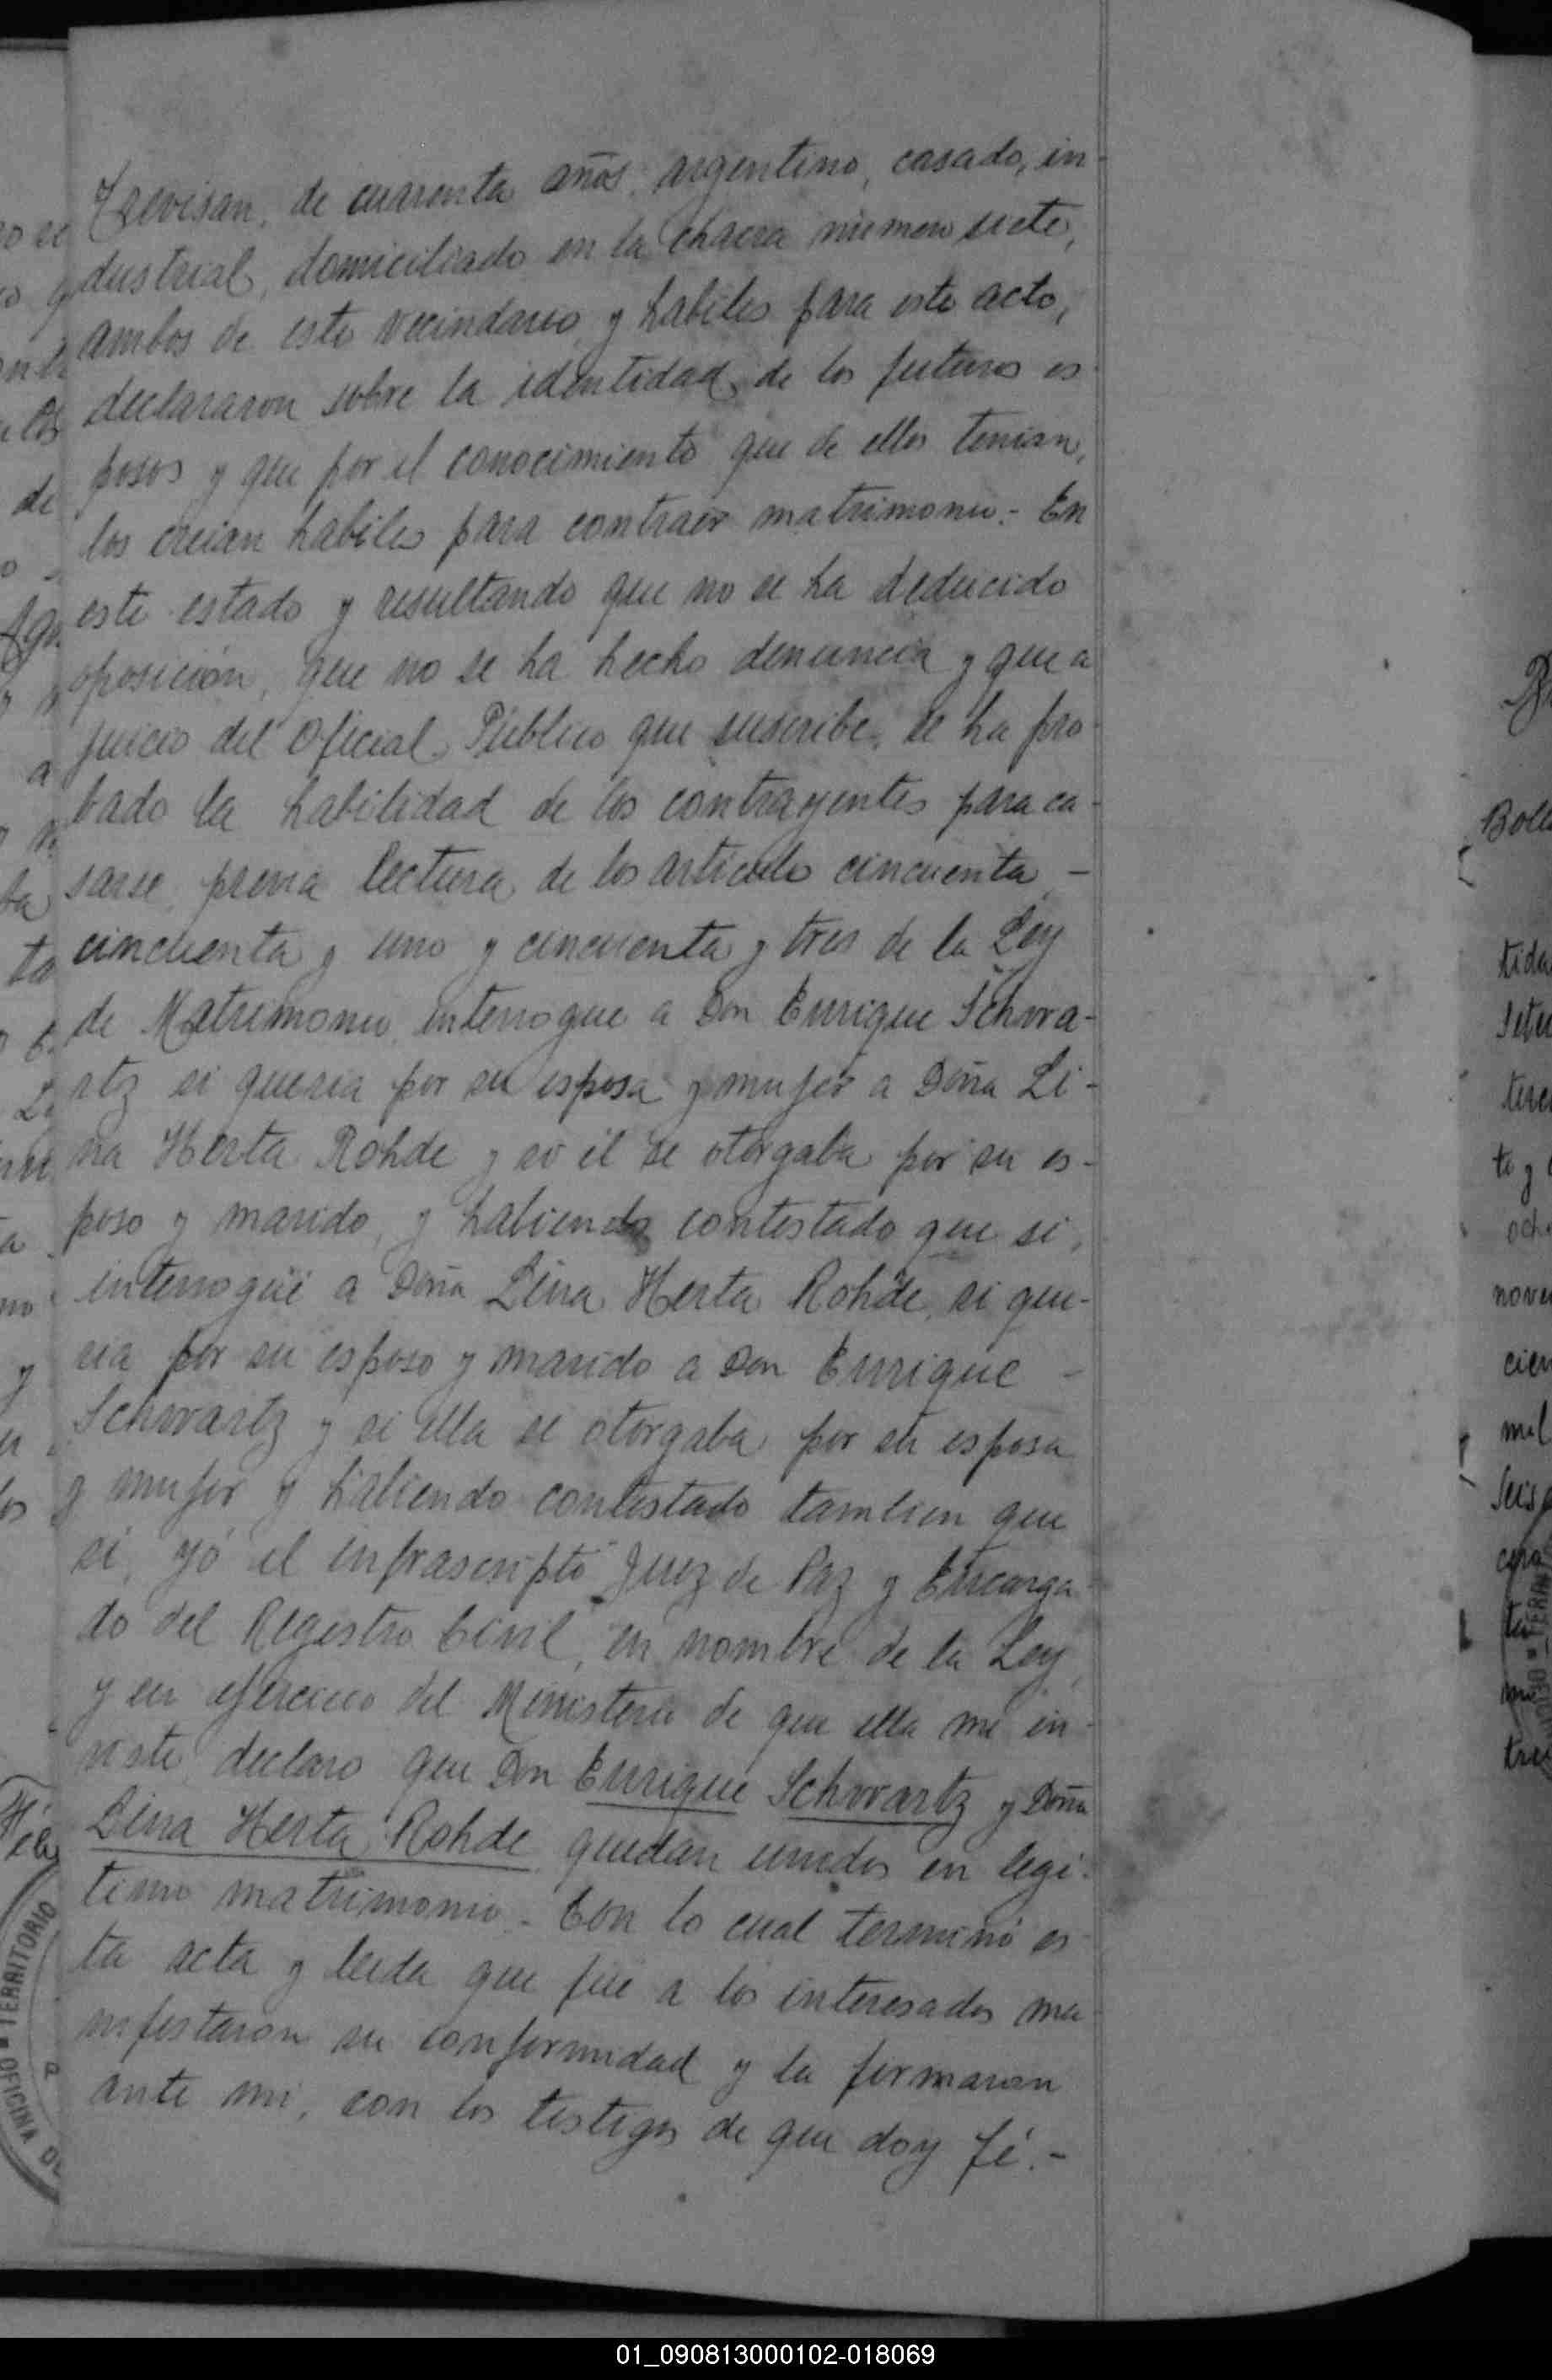 Trevisan, de cuarenta años, argentino, casado, in-
dustrial, domiciliado en la chacra número siete,
ambos de este vecindario, y habiles para este acto,
declararon sobre la identidad de los futuros es-
posos y que por el conocimiento que de ellos tenian,
los creian habiles para contraer matrimonio.- En
este estado y resultando que no se ha deducido
oposición, que no se ha hecho denuncia y que a
juicio del Oficial Público que suscribe, se ha pro-
bado la habilidad de los contrayentes para ca-
sarse, previa lectura de los articulo cincuenta, -
cincuenta y uno y cincuenta y tres de la Ley
de Matrimonio, interrogue a Don Enrique Schwa-
rtz si queria por su esposa y mujer a Doña Li-
na Herta Rohde y si él se otorgaba por su es-
poso y marido, y habiendo contestado que si,
interrogüé a Doña Lina Herta Rohde, si que-
ria por su esposo y marido a Don Enrique -
Schwartz y si ella se otorgaba por su esposa
y mujer y habiendo contestado tambien que
si, yó el infrascripto Juez de Paz y Encarga-
do del Registro Civil, en nombre de la Ley,
y en ejercicio del Ministerio de que ella me in-
viste, declaro que Don Enrique Schwartz y Doña
Lina Herta Rohde quedan unidos en legi-
timo matrimonio.- Con lo cual terminó es-
ta acta y leida que fue a los interesados ma-
nifestaron su conformidad y la firmaron
ante mi, con los testigos de que doy fé.-
TERRITORIO
OFICINA DE
01_090813000102-018069